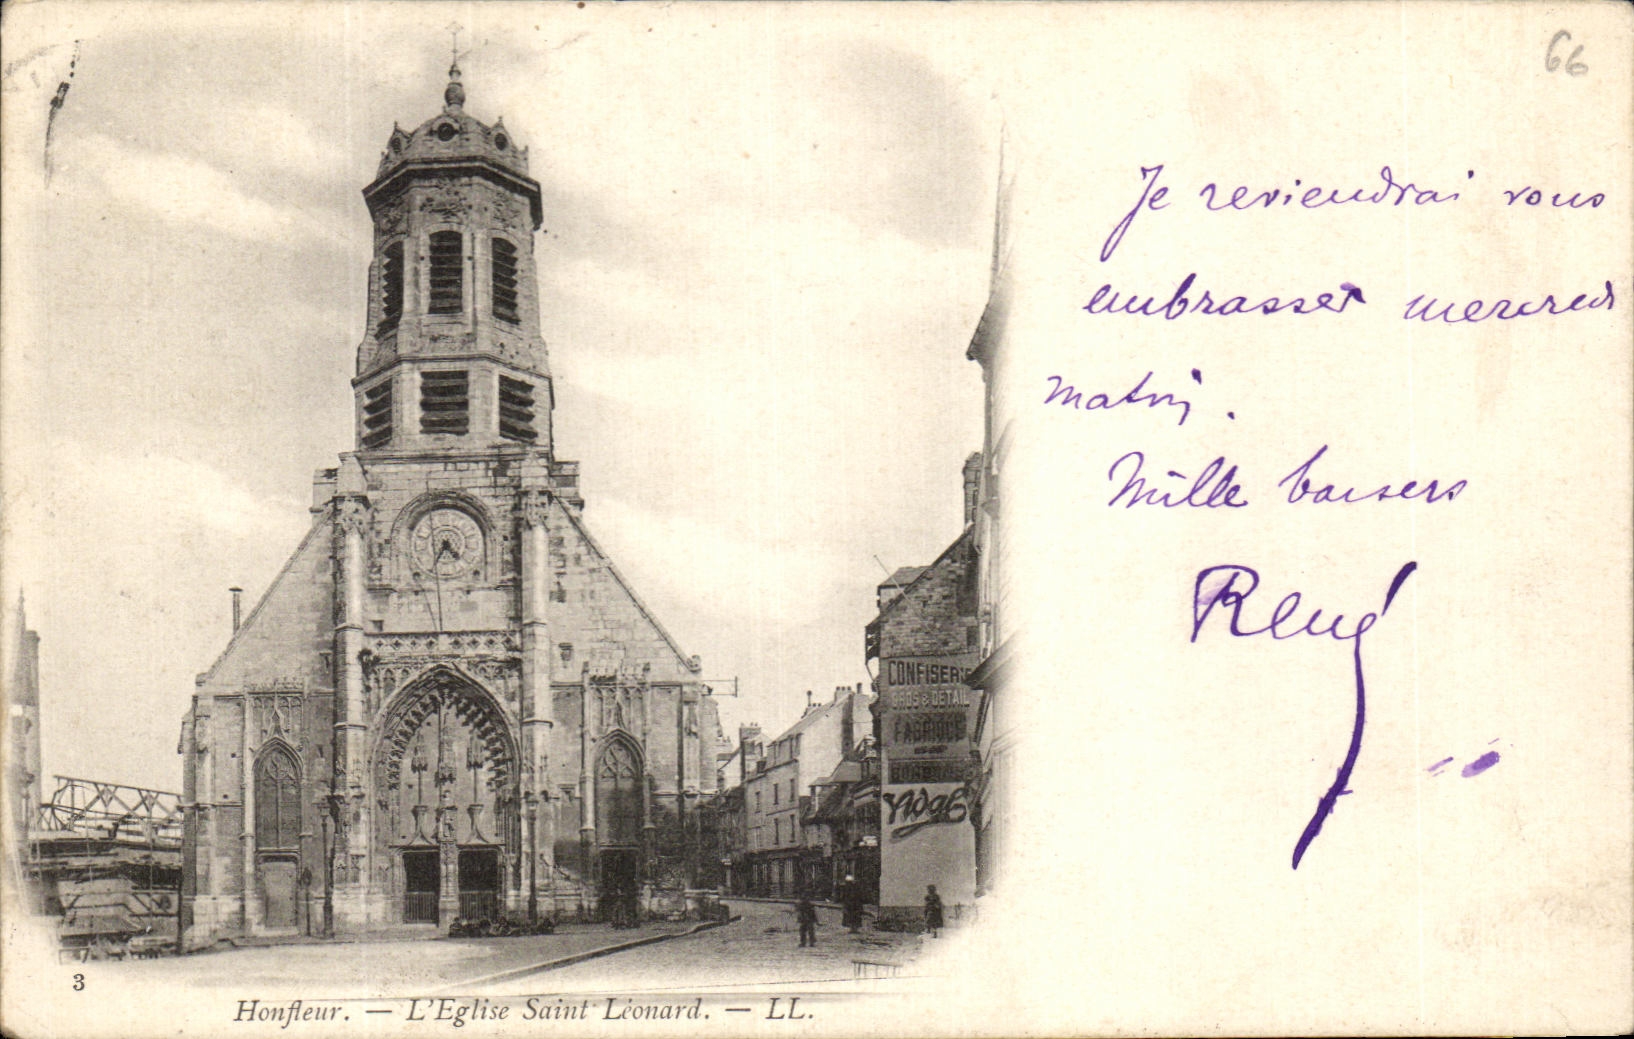 66
Je reviendrai vous
embrasser mercredi
matin.
Mille baisers
René
CONFISERIE
GROS & DETAIL
FABRIQUE
3
Honfleur. — L'Eglise Saint Léonard. — LL.